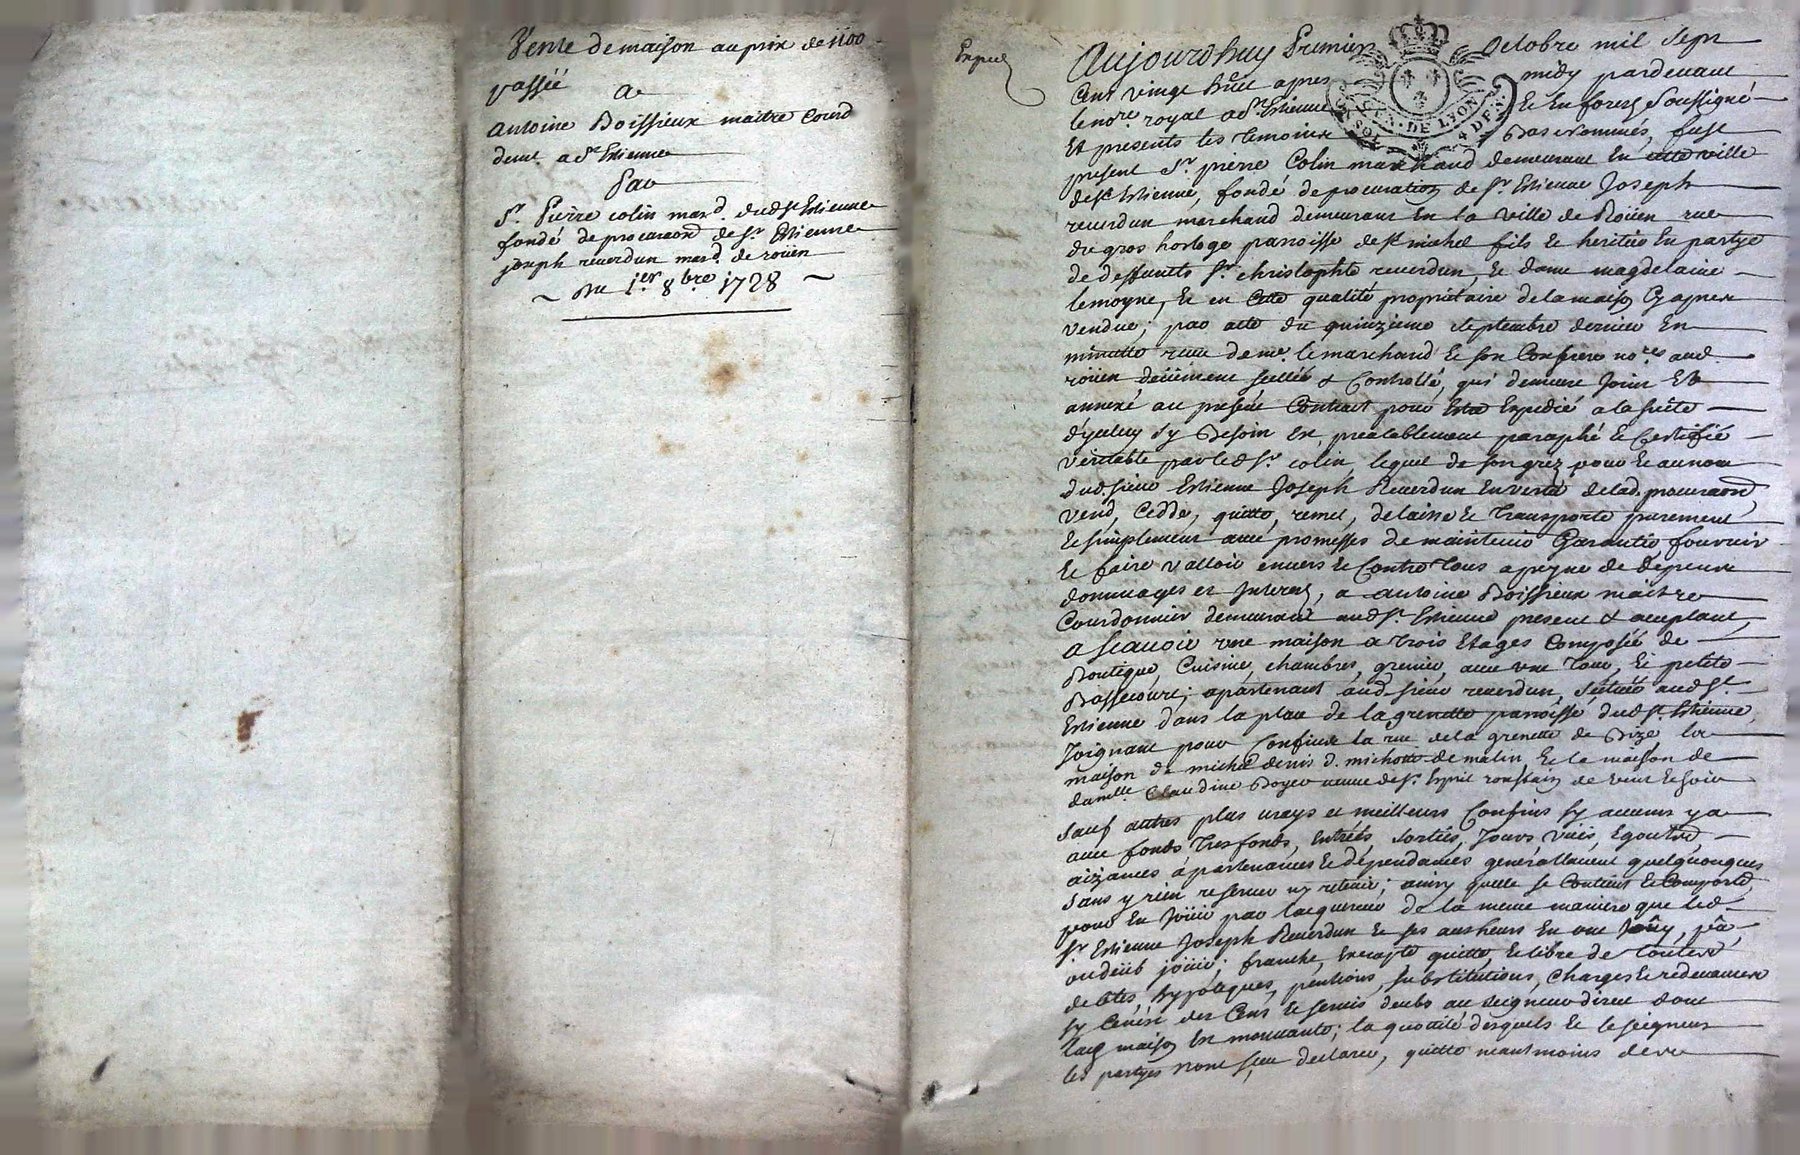 Vente de maison au prix de 1100
passée
A
Antoine Boissieux maitre Cord
demt a St Estienne
Par
Sr Pierre colin mard dud St Estienne
fondé de procuraon de Sr Estienne
joseph reverdun mard de roüen
~ Du 1er 8bre 1728 ~
Expié
Aujourdhuy Premier Octobre mil sept
Cent vingt huit apres midy pardevant
le nore royal a St Estienne Et En forest Soussigné
Et presents les temoins Bas Nommés, fust
present Sr pierre Colin marchand demeurant En cette ville
de St Estienne, fondé de procuration de Sr Estienne Joseph
reverdun marchand demeurant En la ville de Roüen rue
du gros horloge parroisse de St michel fils & heritier En partye
de deffunts Sr christophle reverdun, & dame magdelaine
lemoyne, & en Cette qualité proprietaire de la maison Cy apres
vendue; par acte du quinzieme septembre dernier En
minutte receu de me lemarchand & son Confrere nores aud
roüen deüement scellée & Controllé, qui demeure Joint Et
annexé au present Contract pour Estre Expedié a la suite
d'yceluy Sy Besoin Est, prealablement paraphé & Certifié
veritable par led Sr colin, lequel de son grez pour & au nom
dud. sieur Estienne Joseph Reverdun En vertu de lad. procuraon,
vend, Cedde, quitte, remet, delaisse & Transporte purement
& simplement avec promesses de maintenir Garantir fournir
& faire valloir envers & Contre tous a peyne de depens
dommages et Interests, a Antoine Boissieux maitre
Courdonnier demeurant aud St Estienne present & acceptant,
A Scavoir une maison a trois Etages Composée de
Boutique, Cuisine, chambres, grenier, avec une Cour, & petite
Bassecourt; apartenant aud. sieur reverdun, scituée aud St
Estienne dans la place de la grenette parroisse dud St Estienne,
Joignant pour Confins la rue de la grenette de Bize la
maison de michel denis d. michon de matin, & la maison de
damlle Claudine Boyer veuve de Sr Esprit roustain de vent & soir
Sauf autres plus vrays et meilleurs Confins Sy aucuns y a
avec fonds Tresfonds, Entrées, sorties, Jours, vües, Egouts,
aizances apartenances & dependances generallement quelquonques
Sans y rien reserver ny retenir; ainsy quelle se Contient & Comporte,
pour En Joüir par lacquereur de la meme maniere que led
Sr Estienne Joseph Reverdun & ses autheurs En ont Joüy, pû
ou deüb joüir; franche, Exempte quitte, & libre de toutes
debtes, hypoteques, pentions, substitutions, Charges & redevances
Sy Ce n'est des Cens & servis deubs au seigneur direct dont
lad maison Est mouvante; la quotité desquels & le seigneur
les partyes n'ont sceu declarer, quitte neantmoins de